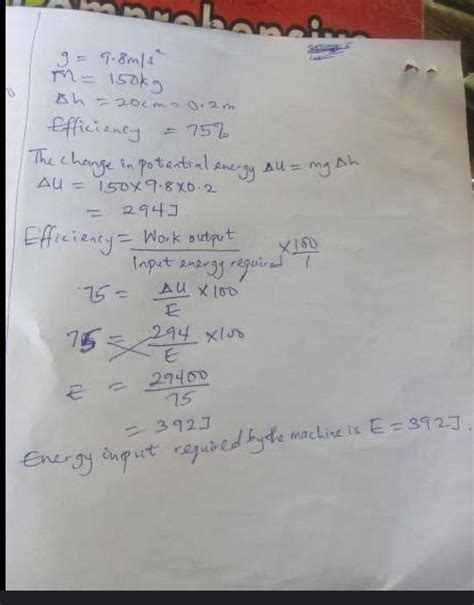 Comprehensive
g = 9.8m/s²
m = 150kg
Δh = 20cm = 0.2m
Efficiency = 75%
The change in potential energy ΔU = mgΔh
ΔU = 150×9.8×0.2
= 294J.
Efficiency = Work output / Input energy required × 100/1
75 = ΔU/E × 100
75 = 294/E × 100
E = 29400/75
= 392J
Energy input required by the machine is E = 392J.